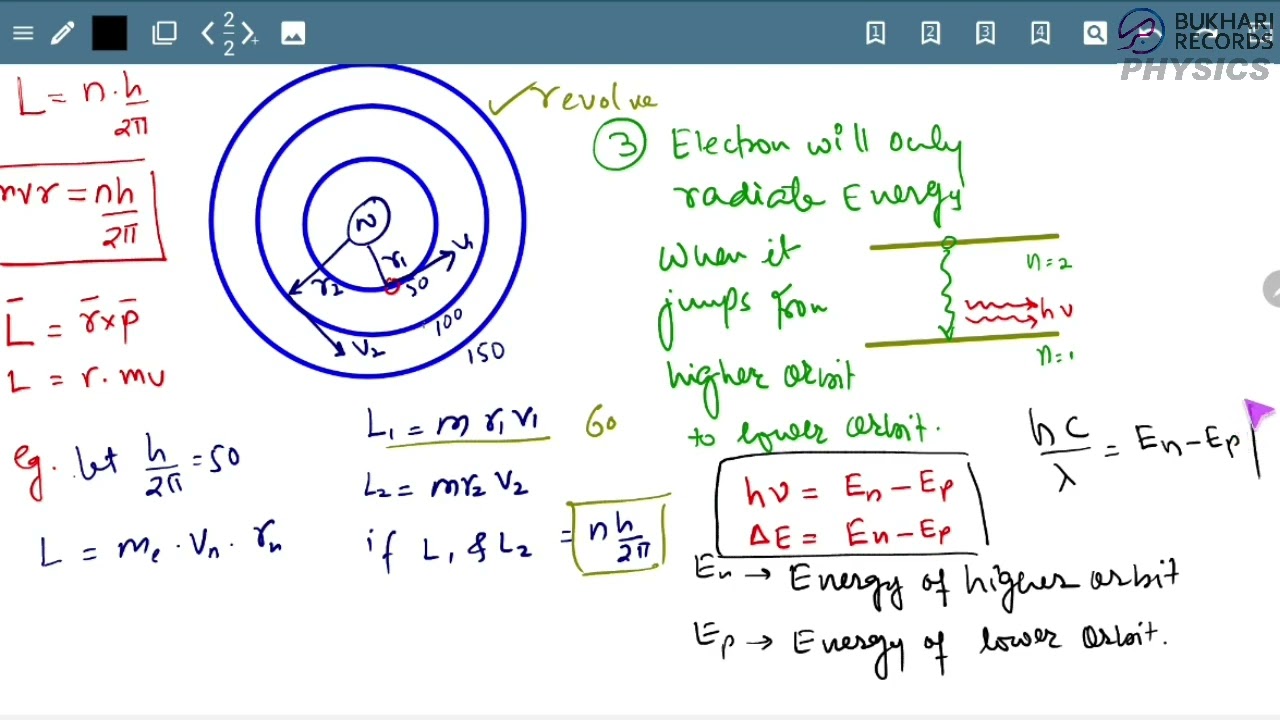 2
2
1
2
3
4
BUKHARI
RECORDS
PHYSICS
L = n · h/2π
mvr = nh/2π
L̄ = r̄ × p̄
L = r · mv
eg. Let h/2π = 50
L = me · Vn · rn
N
r1
r2
V1
V2
50
100
150
revolve
L1 = m r1 v1
60
L2 = m r2 v2
if L1 & L2 = n h/2π
3 Electron will only
radiate Energy
When it
jumps from
higher orbit
to lower orbit.
n=2
hν
n=1
hν = En − Ep
ΔE = En − Ep
hc/λ = En − Ep
En → Energy of higher orbit
Ep → Energy of lower orbit.